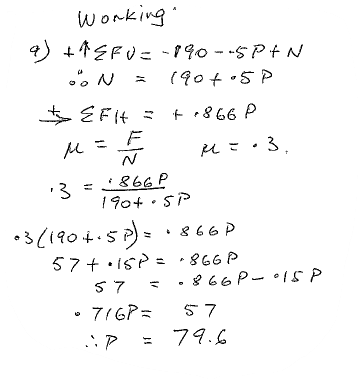 Working
a) +↑ΣFV = -190 - .5P + N
∴ N = 190 + .5P
+→ ΣFH = + .866P
μ = F/N μ = .3.
.3 = .866P/190+.5P
.3(190+.5P) = .866P
57 + .15P = .866P
57 = .866P - .15P
.716P = 57
∴ P = 79.6